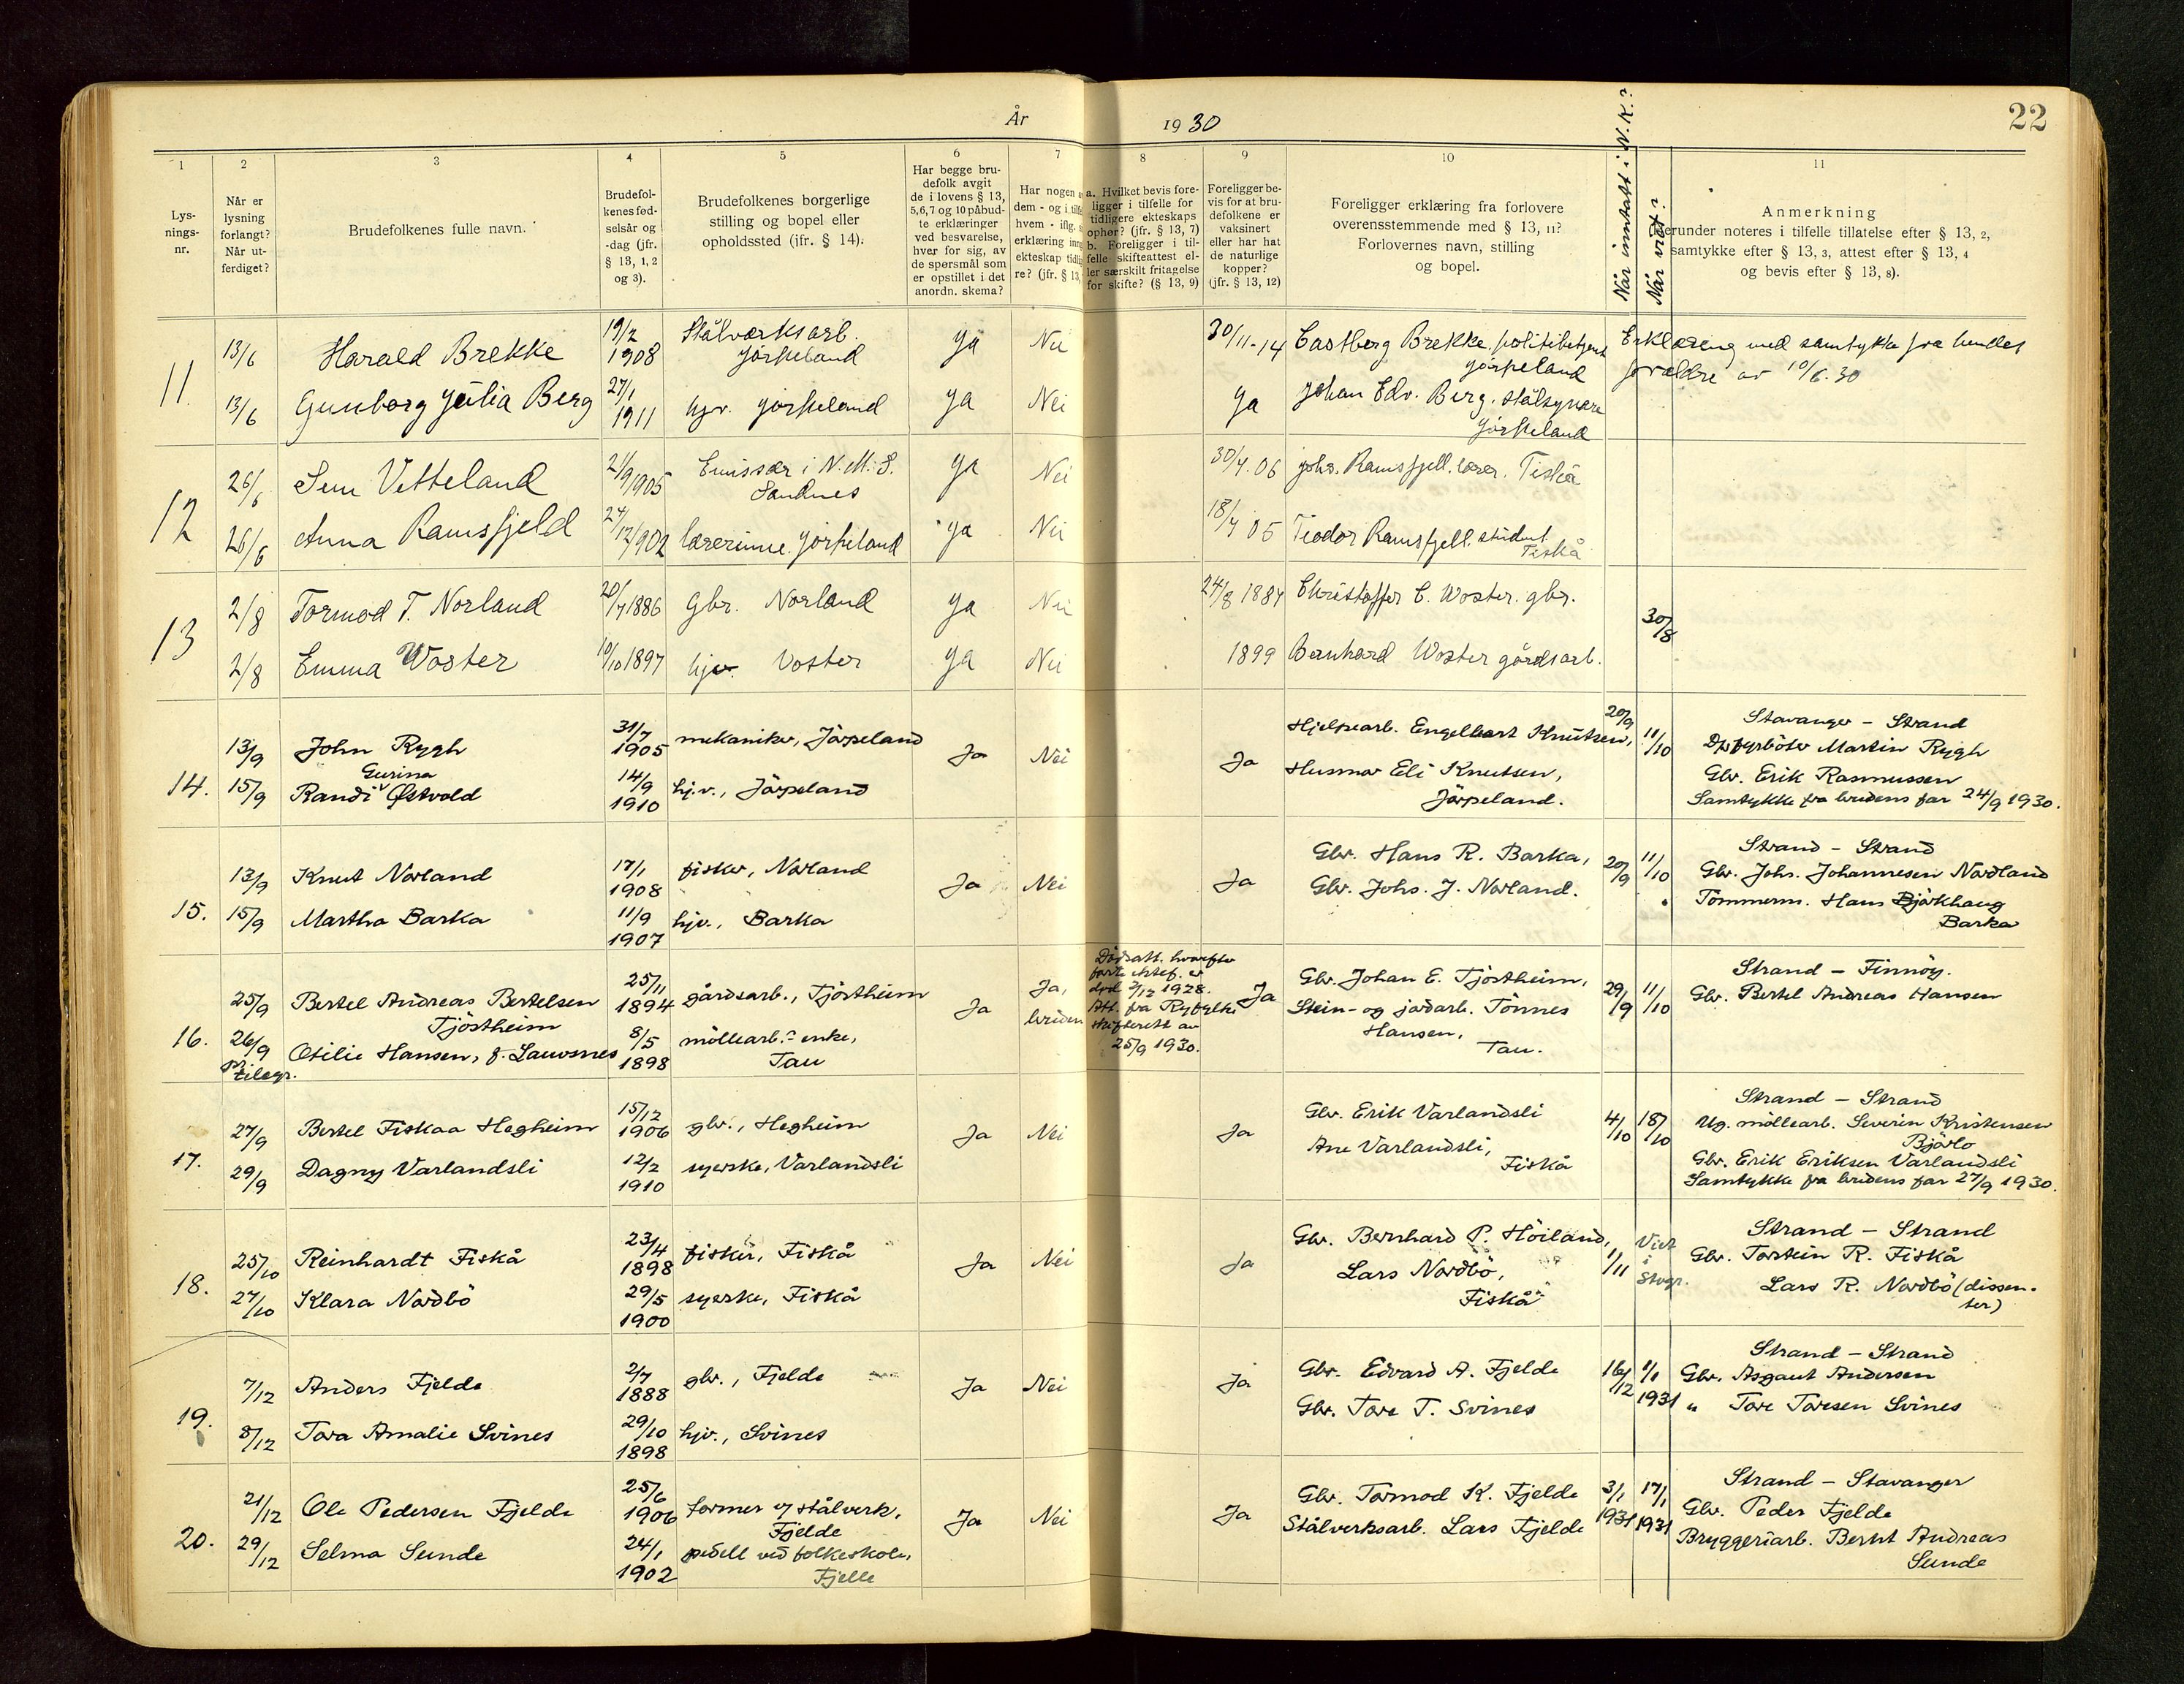 År 1930
22
1
Lys-
nings-
nr.
2
Når er
lysning
forlangt?
Når ut-
ferdiget?
3
Brudefolkenes fulle navn.
4
Brudefol-
kenes fød-
selsår og
-dag (jfr.
§ 13, 1, 2
og 3).
5
Brudefolkenes borgerlige
stilling og bopel eller
opholdssted (jfr. § 14).
6
Har begge bru-
defolk avgit
de i lovens § 13,
5, 6, 7 og 10 påbud-
te erklæringer
ved besvarelse,
hver for sig, av
de spørsmål som
er opstillet i det
anordn. skema?
7
Har nogen
dem - og i
hvem - iflg.
erklæring
ekteskap
re? (jfr. § 13,
8
a. Hvilket bevis fore-
ligger i tilfelle for
tidligere ekteskaps
ophør? (jfr. § 13, 7)
b. Foreligger i til-
felle skifteattest el-
ler særskilt fritagelse
for skifte? (§ 13, 9)
9
Foreligger be-
vis for at bru-
defolkene er
vaksinert
eller har hat
de naturlige
kopper?
(jfr. § 13, 12)
10
Foreligger erklæring fra forlovere
overensstemmende med § 13, 11?
Forlovernes navn, stilling
og bopel.
Når inntatt i N.K.?
Når viet?
11
Anmerkning
Herunder noteres i tilfelle tillatelse efter § 13, 2,
samtykke efter § 13, 3, attest efter § 13, 4
og bevis efter § 13, 8).
11
13/6 Harald Brekke 19/2 1908 Stålverksarb. Jørpeland Ja Nei 30/11-14 Castberg Brekke, politibetjent Jørpeland
Erklæring med samtykke fra hendes
forældre av 10/6.30
13/6 Gunborg Júlia Berg 27/1 1911 hjv. Jørpeland Ja Nei Ja Johan Edv. Berg. Jørpeland
12
26/6 Sem Vetteland 21/9 1905 Emissær i N.M.S. Sandnes Ja Nei 30/4.06 Johs. Ramsfjell. lærer. Fiskå
26/6 Anna Ramsfjeld 24/12 1902 lærerinne Jørpeland Ja Nei 18/4 05 Teodor Ramsfjell. stúdent Fiskå
13
2/8 Tormod T. Norland 20/7 1886 Gbr. Norland Ja Nei 24/8 1887 Christoffer C. Woster. gbr. 30/8
2/8 Emma Woster 10/10 1897 hjv. Voster Ja Nei 1899 Bernhard Woster gårdsarb.
14.
13/9 John Rygh 31/7 1905 mekaniker, Jörpeland Ja Nei Ja
15/9 Randi Gurina Østvold 14/9 1910 hj.v., Jörpeland
Hjelpearb. Engelbart Knutsen,
Husmor Eli Knutsen,
Jörpeland.
20/9 11/10
Stavanger - Strand
Dpfyrböter Martin Rygh
Gbr. Erik Rasmussen
Samtykke fra brudens far 24/9 1930.
15.
13/9 Knut Norland 17/1 1908 fisker, Norland Ja Nei Ja
15/9 Martha Barka 11/9 1907 hjv., Barka
Gbr. Hans R. Barka,
Gbr. Johs. J. Norland.
20/9 11/10
Strand - Strand
Gbr. Johs. Johannesen Nordland
Tömmerm. Hans Björkhaug
Barka
16.
25/9 Bertel Andreas Bertelsen Tjöstheim 25/11 1894 gårdsarb., Tjöstheim Ja Ja, bruden
26/9 pr. telegr. Otilie Hansen, f. Lauvsnes 8/5 1898 möllearb.- enke, Tau
Dödsatt. hvorefter
förste ektef. er
död 7/12 1928.
Att. fra Ryfylke
skifterett av
25/9 1930.
Ja
Gbr. Johan E. Tjöstheim,
Stein- og jordarb. Tönnes
Hansen,
Tau.
29/9 11/10
Strand - Finnöy.
Gbr. Bertel Andreas Hansen
17.
27/9 Bertel Fiskaa Hegheim 15/12 1906 gbr., Hegheim Ja Nei Ja
29/9 Dagny Varlandsli 12/2 1910 syerske, Varlandsli
Gbr. Erik Varlandsli
Ane Varlandsli,
Fiskå
4/10 18/10
Strand - Strand
Ug. möllearb. Severin Kristensen
Björlo
Gbr. Erik Eriksen Varlandsli
Samtykke fra brudens far 27/9 1930.
18.
25/10 Reinhardt Fiskå 23/4 1898 fisker, Fiskå Ja Nei Ja
27/10 Klara Nordbö 29/5 1900 syerske, Fiskå
Gbr. Bernhard P. Höiland,
Lars Nordbö,
Fiskå
1/11 Viet i Stvgr.
Strand - Strand
Gbr. Torstein R. Fiskå
Lars R. Nordbö (dissen-
ter)
19.
7/12 Anders Fjelde 2/7 1888 gbr., Fjelde Ja Nei Ja
8/12 Tora Amalie Svines 29/10 1898 hjv., Svines
Gbr. Edvard A. Fjelde
Gbr. Tore T. Svines
16/12 1/1 1931
Strand - Strand
Gbr. Asgaut Andersen
" Tore Toresen Svines
20.
21/12 Ole Pedersen Fjelde 25/6 1906 former v/ stålverk, Fjelde Ja Nei Ja
29/12 Selma Sunde 24/1 1902 pedell ved folkeskole, Fjelle
Gbr. Tormod K. Fjelde
Stålverksarb. Lars Fjelde
3/1 1931 17/1 1931
Strand - Stavanger
Gbr. Peder Fjelde
Bryggeriarb. Bernt Andreas
Sunde